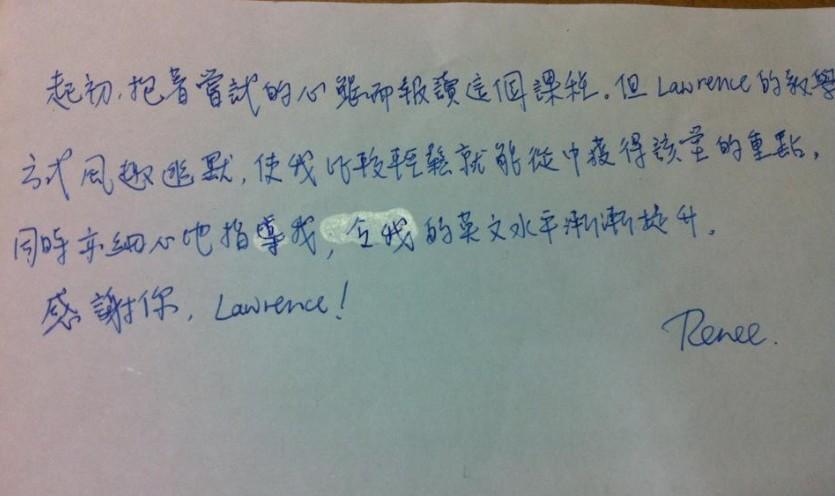 起初,抱着嘗試的心態而報讀這個課程。但Lawrence的教學
方式風趣幽默,使我比較輕鬆就能從中獲得該堂的重點,
同時亦細心地指導我,令我的英文水平漸漸提升。
感謝你,Lawrence!
Renee.